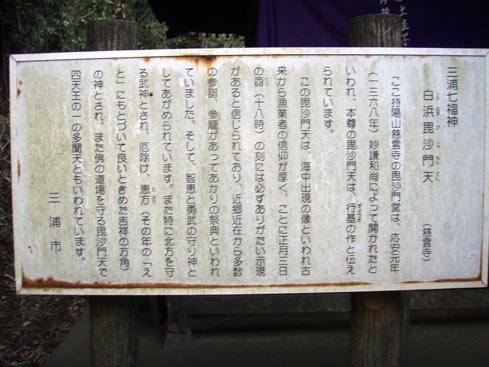 三浦七福神
白浜毘沙門天　（慈雲寺）
ここ持陽山慈雲寺の毘沙門堂は、応安元年
（一三六八年）妙謙和尚によって開かれたと
いわれ、本尊の毘沙門天は、行基の作と伝え
られています。
この毘沙門天は、海中出現の像といわれ古
来から漁業者の信仰が厚く、ことに正月三日
の酉（十八時）の刻には必ずありがたい示現
があると信じられており、近郷近在から多数
の参詣、参籠があってあかりの祭典といわれ
ていました。そして、智恵と勇武の守り神と
してあがめられています。また特に北方を守
る武神とされ、厄除け、恵方（その年の「え
と」にもとづいて良いときめた吉祥の方角）
の神とされ、また佛の道場を守る毘沙門天で
四天王の一の多聞天ともいわれています。
三浦市